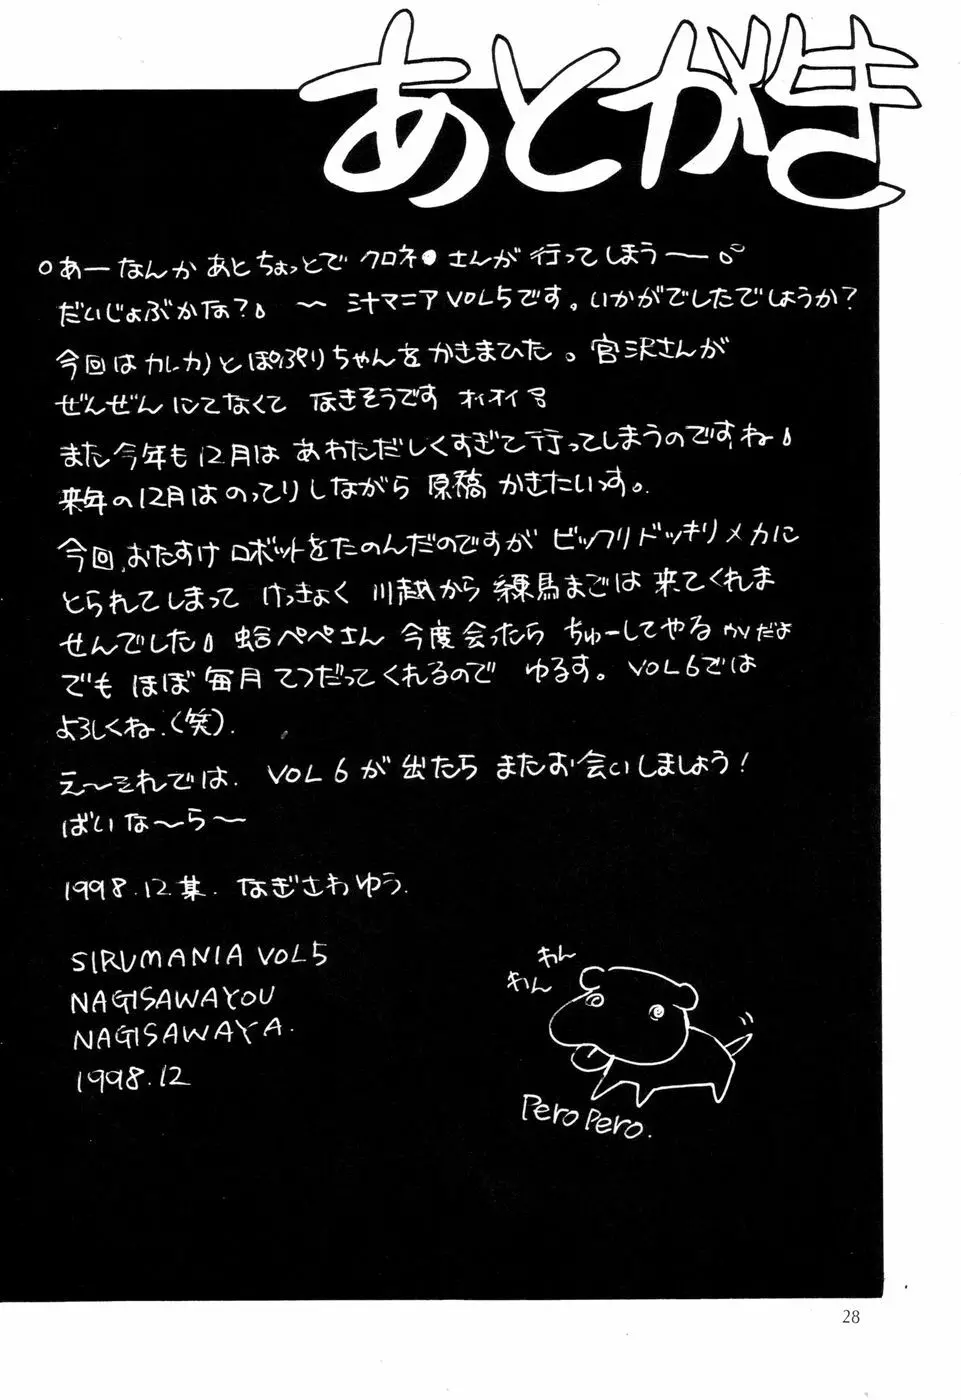 あとがき
○あーなんか あとちょっとで クロネ●さんが 行ってしまう——。
だいじょぶかな? 〜 汁マニア VOL5です。いかがでしたでしょうか?
今回は カレカノと ぽぷりちゃんを かきまひた。宮沢さんが
ぜんぜん にてなくて なきそうです オイオイ
また今年も12月は あわただしくすぎて行ってしまうのですね
来年の12月はのってりしながら 原稿 かきたいっす。
今回、おたすけ ロボットをたのんだのですが ビックリドッキリメカに
とられてしまって けっきょく 川越から 練馬までは 来てくれま
せんでした 蛤ペペさん 今度会ったら ちゅーしてやるかんだよ
でも ほぼ毎月 てつだってくれるので ゆるす。VOL6では
よろしくね.(笑).
え〜それでは. VOL6が 出たら またお会いしましょう!
ばいな〜ら〜
1998.12.某. なぎさわゆう.
SIRUMANIA VOL5
NAGISAWAYOU
NAGISAWAYA.
1998.12
わん
わん
PeroPero.
28